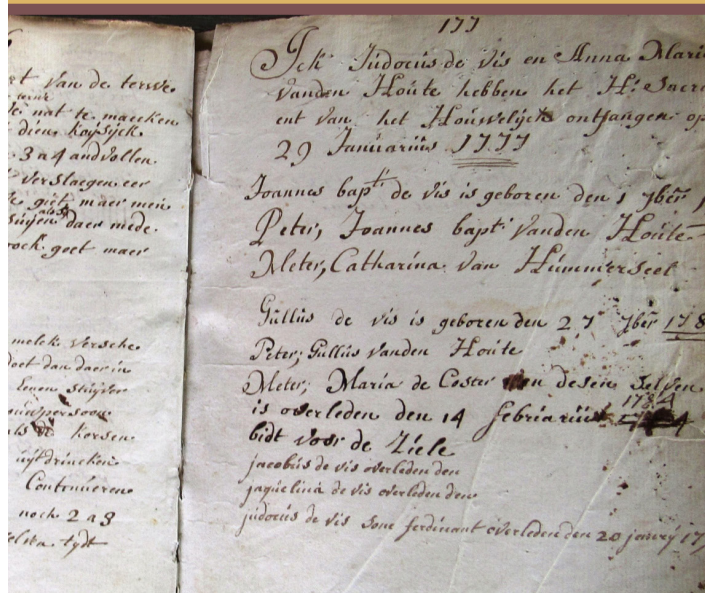 rt van de terwe
nat te maecken
dien koysijck
3 a 4 andvollen
verslaegen eer
giet maer mein
daer mede
oock goet maer
melck versche
doet dan daer in
eenen stuyver
persoon
kersen
uijtdrincken
Continueren
noch 2 a 3
tydt
177
Ick Judocus de Vis en Anna Mari
vanden Houte hebben het H: Sacre
ent van het Houwelijck ontfangen op
29 Januarius 1777
Joannes bapt: de vis is geboren den 1 7ber 1
Peter, Joannes bapt: vanden Houte
Meter, Catharina van Hummerseel
Gillius de vis is geboren den 27 7ber 178
Peter; Gillius vanden Houte
Meter; Maria de Coster van desen selven
is overleden den 14 febriarius 1784
bidt voor de Ziele
jacobus de vis overleden den
jaquelina de vis overleden den
judocus de vis sone ferdinant overleden den 20 janury 17